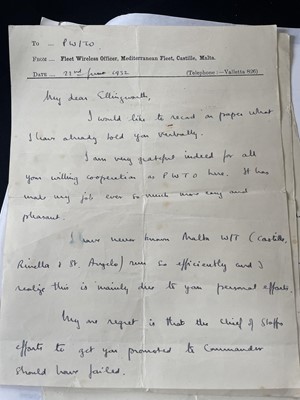 To — PW/TO
From — Fleet Wireless Officer, Mediterranean Fleet, Castille, Malta.
Date — 21st June 1932 (Telephone :—Valletta
My dear Ellingworth,
I would like to record on paper what
I have already told you verbally.
I am very grateful indeed for all
your willing cooperation as PWTO here. It has
made my job ever so much more easy and
pleasant.
I have never known Malta W/T (Castille,
Rinella & St. Angelo) run so efficiently and I
realize this is mainly due to your personal efforts.
My one regret is that the Chief of Staff's
efforts to get you promoted to Commander
should have failed.